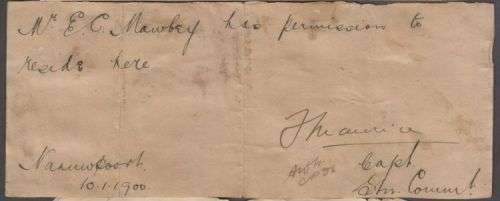 Mr E. C. Mawbey has permission to
reside here
Naauwpoort
10.1.1900
Capt
Com